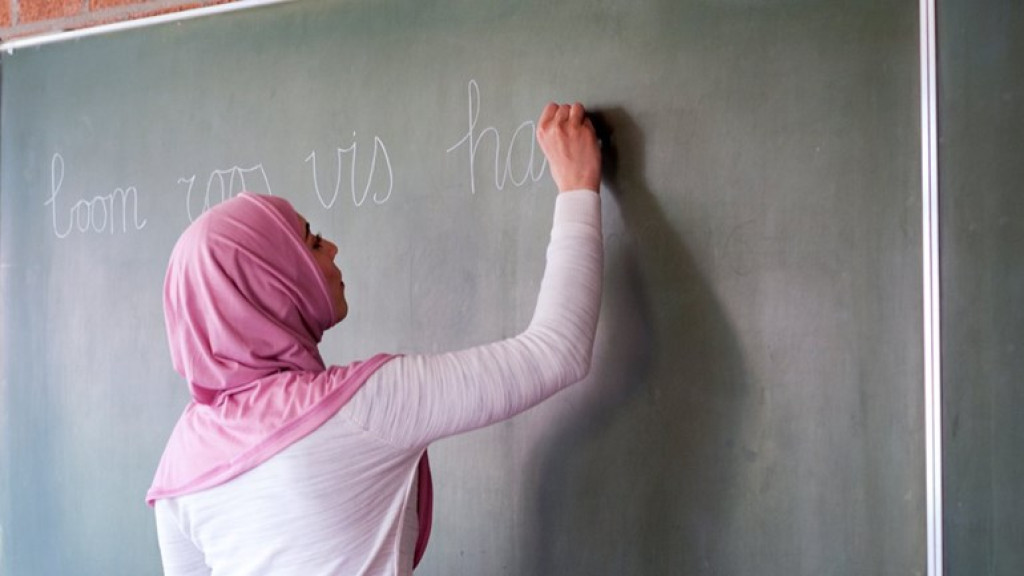 boom roos vis ha